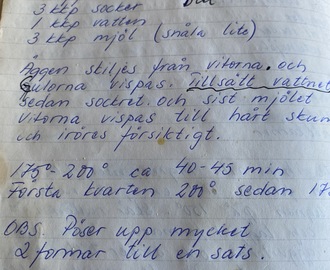 3 kkp socker
1 kkp vatten
3 kkp mjöl (snåla lite)
Äggen skiljes från vitorna. och
Gulorna vispas. Tillsätt vattnet
sedan sockret och sist mjölet
Vitorna vispas till hårt skum
och iröres försiktigt.
175°-200° ca 40-45 min
Första kvarten 200° sedan 17
OBS. Pöser upp mycket
2 formar till en sats.